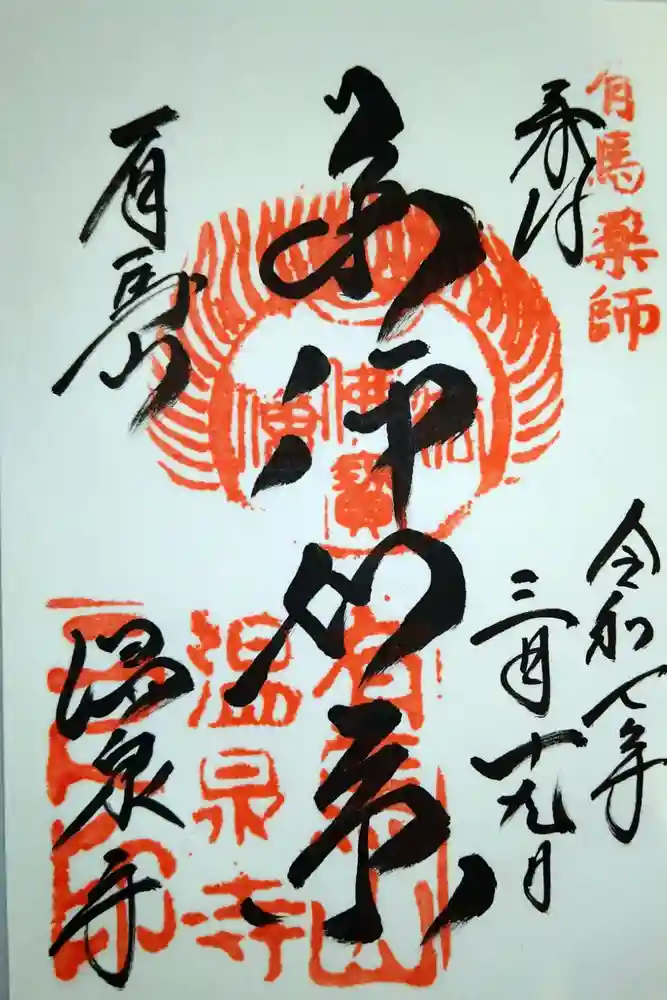 有馬薬師
奉拝
令和七年
三月十九日
薬師如来
佛
寶
有馬山
温泉寺
有馬山
温泉寺
之印